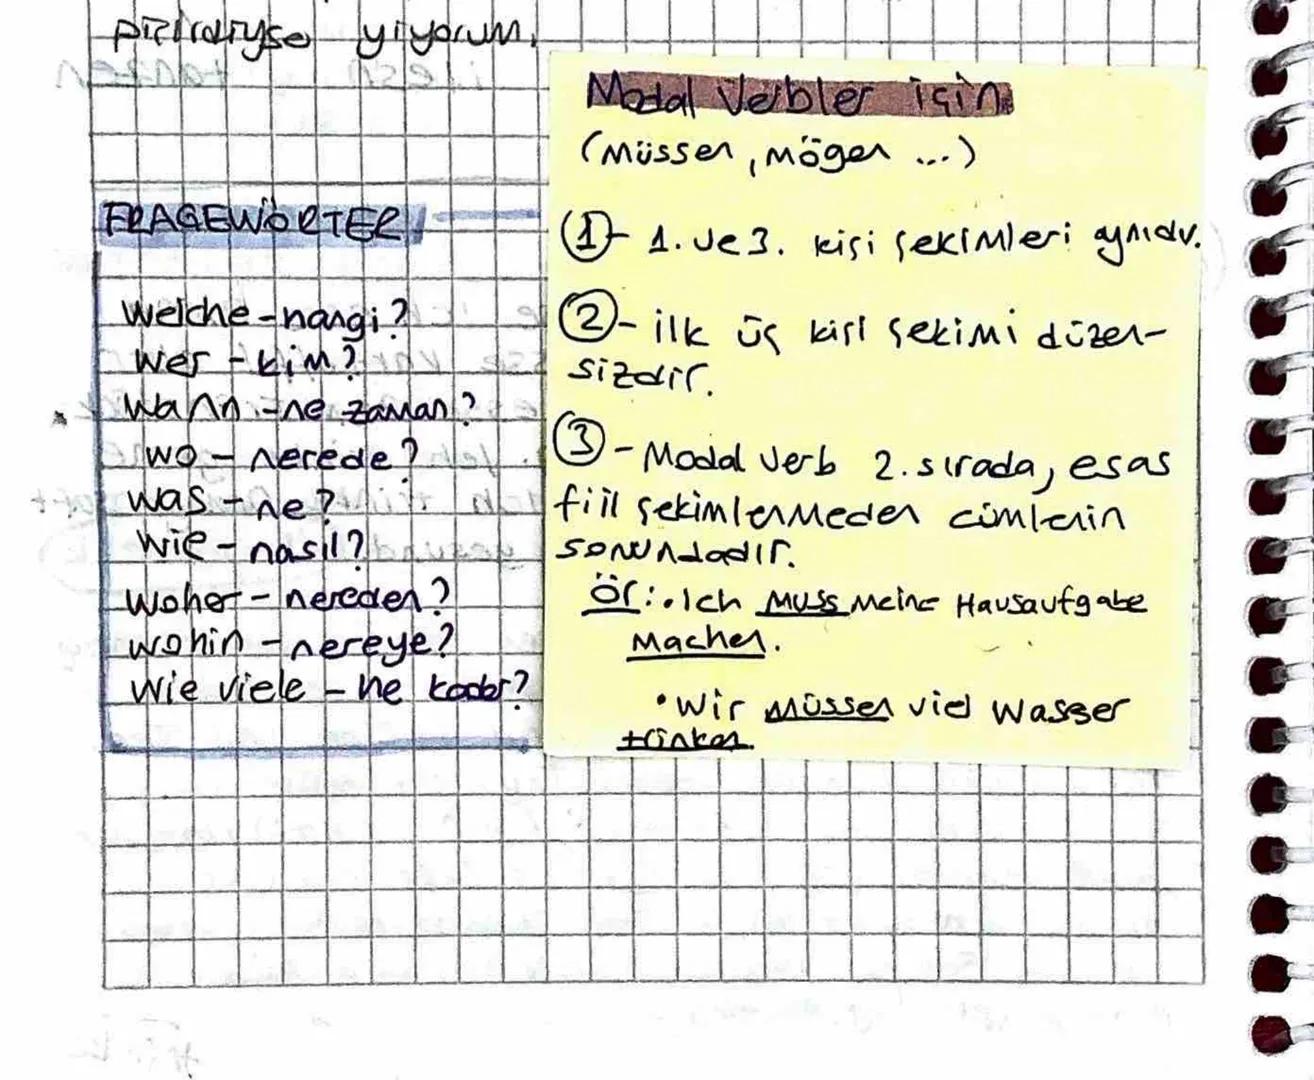 pizzaıysa yiyorum.
FRAGEWÖRTER
Welche - hangi?
Wer - kim?
Wann - ne zaman?
Wo - nerede?
Was - ne?
Wie - nasıl?
Woher - nereden?
Wohin - nereye?
Wie viele - ne kadar?
Modal Verbler için
(Müssen, Mögen ...)
1 - 1. ve 3. kişi çekimleri aynıdır.
2 - ilk üç kişi çekimi düzen-
sizdir.
3 - Modal Verb 2. sırada, esas
fiil çekimlenmeden cümlenin
sonundadır.
Ör: • Ich muss meine Hausaufgabe
machen.
• Wir müssen viel Wasser
trinken.